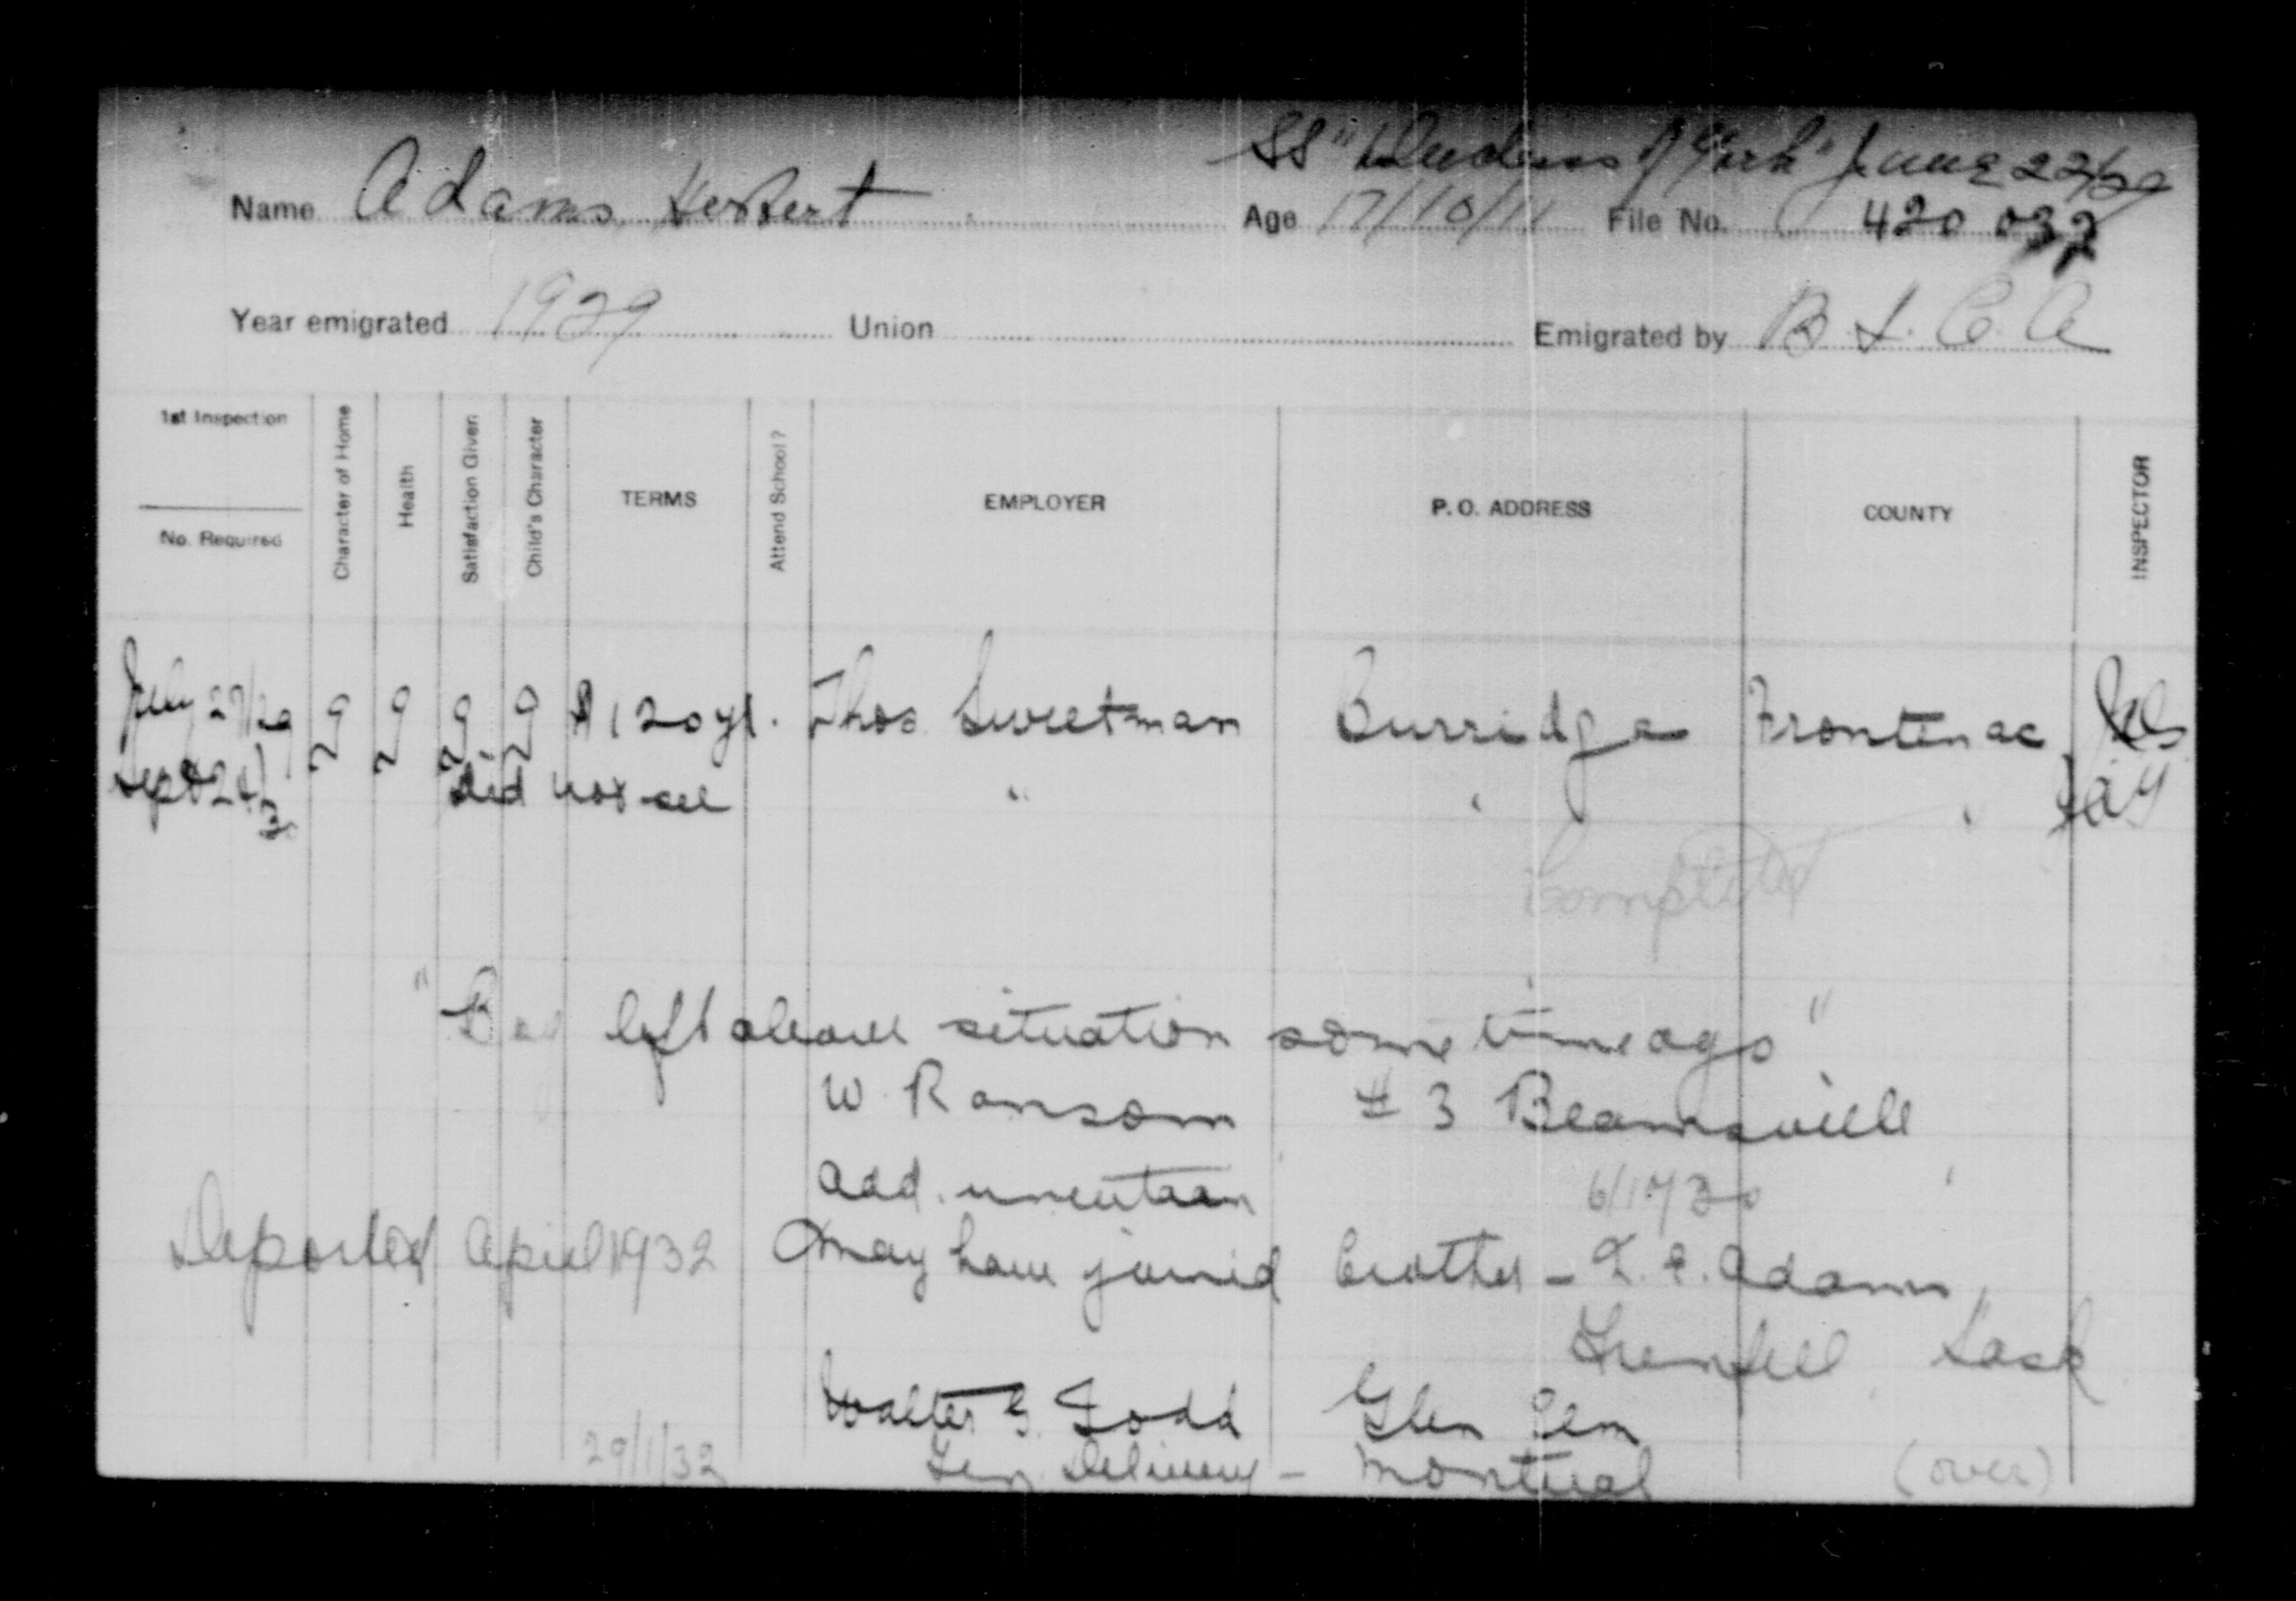 SS "Duchess of York" June 22/29
Name Adams, Herbert Age 17/10/11 File No. 420 032
Year emigrated 1929 Union Emigrated by B. I. C. A
1st Inspection
No. Required
Character of Home
Health
Satisfaction Given
Child's Character
TERMS
Attend School?
EMPLOYER
P. O. ADDRESS
COUNTY
INSPECTOR
July 27/29 g g g g $120 yr. Thos Sweetman Burridge Frontenac
Sept 24/30 Did not see " " "
Completed
"Boy left above situation some time ago"
W. Ransom #3 Beamsville
Add. uncertain 6/1/30
Deported April 1932 may have joined brother - Adams,
Grenfell Sask
Walter Todd Glen Elm
29/1/32 Gen. Delivery - Montreal (over)